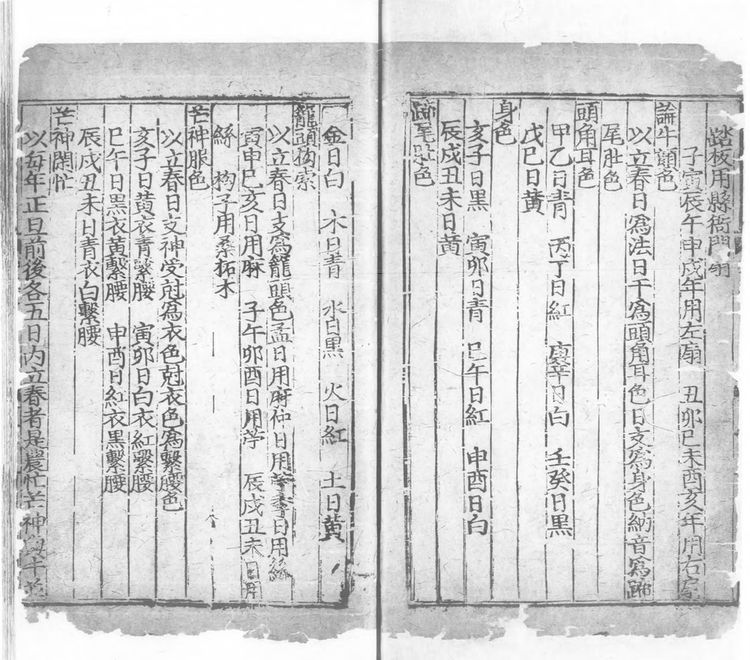 踏板用縣衙門扇
子寅辰午申戌年用左扇　丑卯巳未酉亥年用右扇
論牛顔色
以立春日爲法日干爲頭角耳色日支爲身色納音爲蹄
尾肚色
頭角耳色
甲乙日青　丙丁日紅　庚辛日白　壬癸日黑
戊巳日黄
身色
亥子日黑　寅卯日青　巳午日紅　申酉日白
辰戌丑未日黄
蹄尾肚色
金日白　木日青　水日黒　火日紅　土日黄
籠頭拘索
以立春日支爲籠頭色孟日用麻仲日用苧季日用絲
寅申巳亥日用麻　子午卯酉日用苧　辰戌丑未日用
絲　拘子用桑拓木
芒神服色
以立春日支神受尅爲衣色尅衣色爲繫腰色
亥子日黄衣青繫腰　寅卯日白衣紅繫腰
巳午日黒衣黄繫腰　申酉日紅衣黒繫腰
辰戌丑未日青衣白繫腰
芒神閑忙
以每年正旦前後各五日内立春者是農忙芒神與牛並